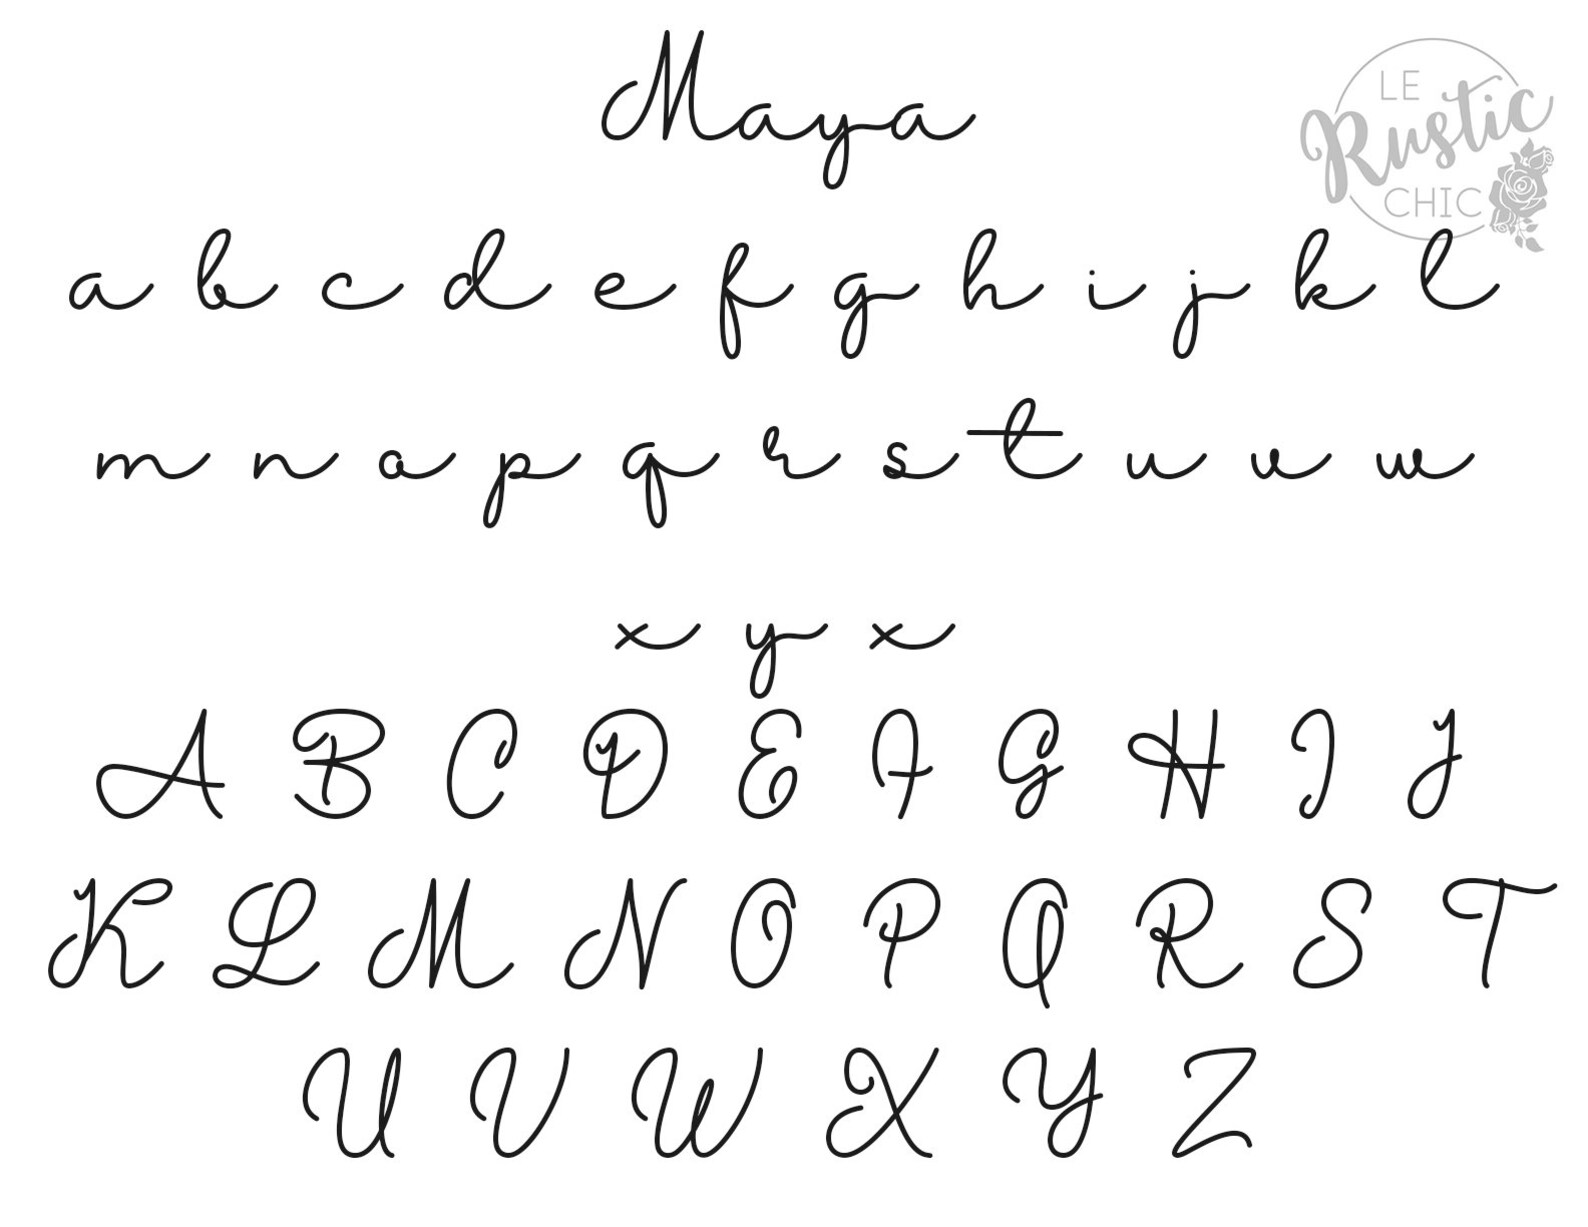 Maya
LE
Rustic
CHIC
a b c d e f g h i j k l
m n o p q r s t u v w
x y x
A B C D E F G H I J
K L M N O P Q R S T
U V W X Y Z